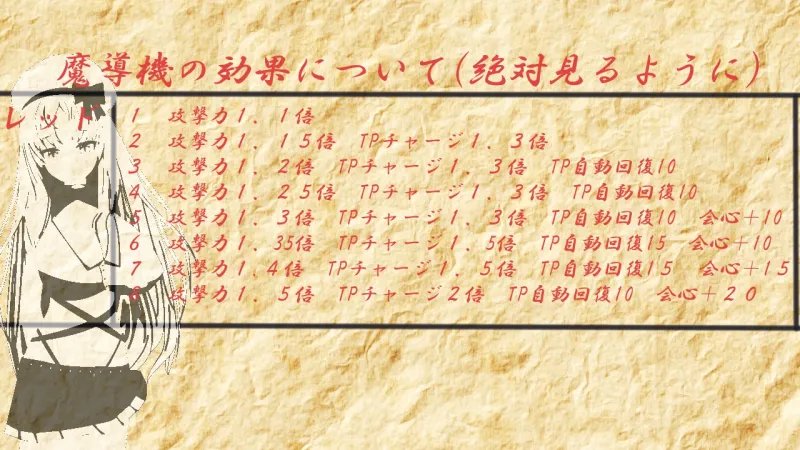 魔導機の効果について(絶対見るように)
レッド 1 攻撃力１．１倍
2 攻撃力１．１５倍 TPチャージ１．３倍
3 攻撃力１．２倍 TPチャージ１．３倍 TP自動回復10
4 攻撃力１．２５倍 TPチャージ１．３倍 TP自動回復10
5 攻撃力１．３倍 TPチャージ１．３倍 TP自動回復10 会心＋10
6 攻撃力１．35倍 TPチャージ１．5倍 TP自動回復15 会心＋10
7 攻撃力1.４倍 TPチャージ１．５倍 TP自動回復1５ 会心＋１５
8 攻撃力１．５倍 TPチャージ２倍 TP自動回復10 会心＋２０